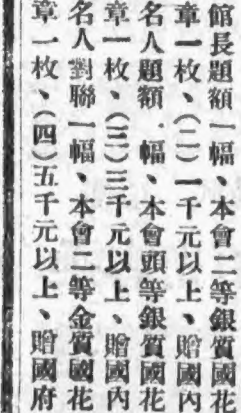 館長題額一幅、本會二等銀質國花
章一枚、(二)一千元以上、贈國內
名人題額.幅、本會頭等銀質國花
章一枚、(三)三千元以上、贈國內
名人對聯一幅、本會二等金質國花
章一枚、(四)五千元以上、贈國府